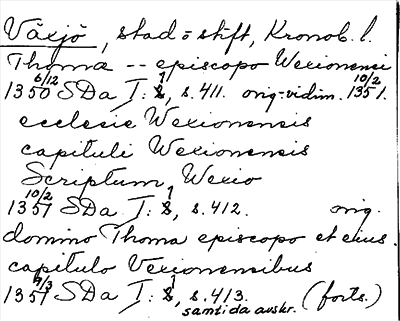 Växjö, stad o stift, Kronob. l.
Thoma -- episcopo Wexionensi
1350 6/12 SDa I: 1, s. 411. orig.-vidim. 10/2 1351.
ecclesie Wexionensis
capituli Wexionensis
Scriptum Wexio
1351 10/2 SDa I: 1, s. 412. orig.
domino Thoma episcopo et eius
capitulo Vexionensibus
1351 9/3 SDa I: 1, s. 413. (forts.)
samtida avskr.